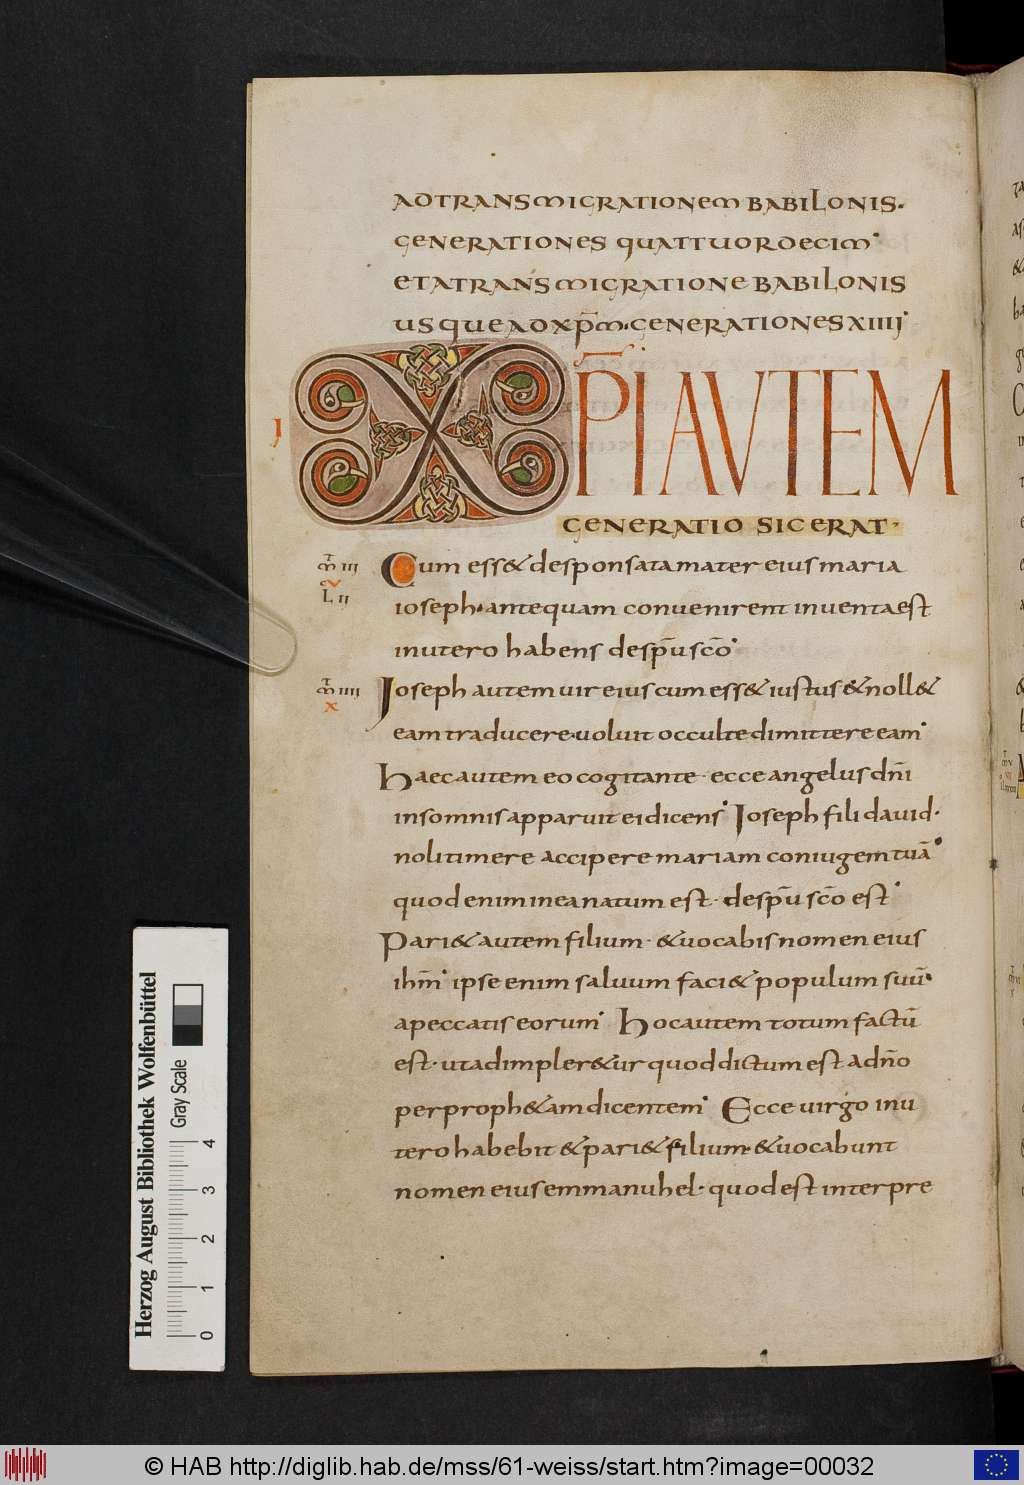 ADTRANSMIGRATIONEM BABILONIS.
GENERATIONES QUATTUORDECIM
ETATRANSMIGRATIONE BABILONIS
USQUEADXP̄M. GENERATIONES XIIII
I XP̄I AUTEM
GENERATIO SIC ERAT
T M III
Cum ess& desponsata mater eius maria
V L II
ioseph. antequam convenirent inventa est
inutero habens desp̄u sc̄o
T M IIII
Ioseph autem vir eius cum ess& iustus & noll&
X
eam traducere. voluit occulte dimittere eam
Haec autem eo cogitante. ecce angelus dn̄i
in somnis apparuit ei dicens Ioseph fili david.
noli timere accipere mariam coniugem tuā
quod enim in ea natum est. desp̄u sc̄o est
Pari& autem filium. & vocabis nomen eius
ihm̄ ipse enim salvum faci& populum suū
apeccatis eorum Hoc autem totum factū
est. ut adimpler&ur quod dictum est adn̄o
per proph&am dicentem Ecce virgo inu
tero habebit & pari& filium. & vocabunt
nomen eius emmanuhel. quod est interpre
Herzog August Bibliothek Wolfenbüttel
Gray Scale
0 1 2 3 4
© HAB http://diglib.hab.de/mss/61-weiss/start.htm?image=00032